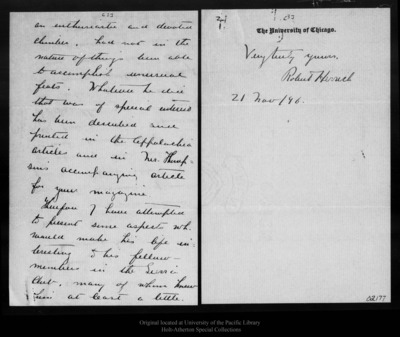 an enthusiastic and devoted
climber, had not in the
nature of things been able
to accomplish unusual
feats. Whatever he did
that was of special interest
has been described and
printed in the Appalachia
article and in Mr. Thomp-
son's accompanying article
for your magazine.
I have attempted
to present some aspects wh.
would make his life in-
teresting to his fellow-
members in the Sierra
Club, many of whom knew
him at least a little.
The University of Chicago.
Very truly yours,
Robert
21 Nov/96.
02177
Original located at University of the Pacific Library
Holt-Atherton Special Collections